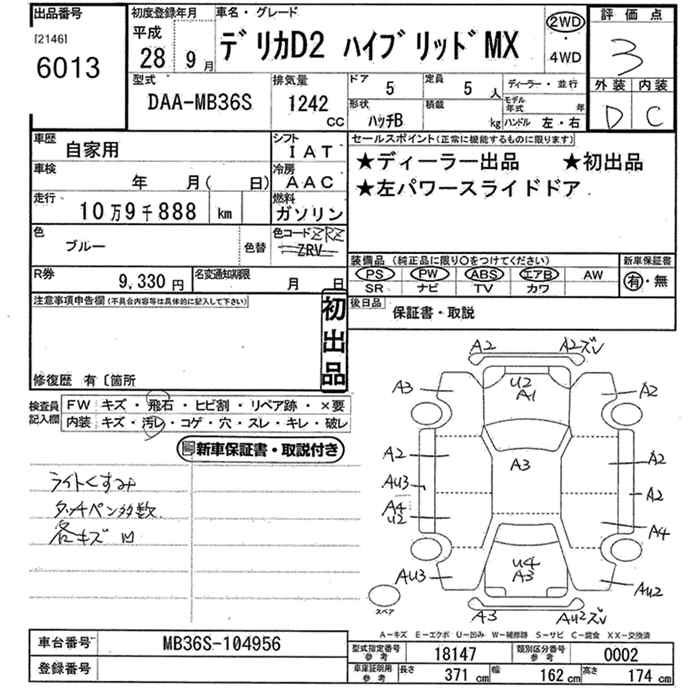 出品番号
[2146]
6013
初度登録年月
平成
28年 9月
車名・グレード
デリカD2 ハイブリッドMX
2WD
・
4WD
評価点
3
外装 内装
D C
型式
DAA-MB36S
排気量
1242
CC
ドア
5
定員
5 人
ディーラー・並行
形状
ハッチB
積載
kg
モデル年式 年
ハンドル 左・右
車歴
自家用
シフト
IAT
車検
年 月( 日)
冷房
AAC
走行
10万9千888 km
燃料
ガソリン
色
ブルー
色替
色コード ZRZ
ZRV
R券
9,330円
名変通知期限
月 日
セールスポイント(正常に機能するものに限ります)
★ディーラー出品 ★初出品
★左パワースライドドア
装備品(純正品に限り○をつけてください)
PS PW ABS エアB AW
SR ナビ TV カワ
新車保証書
有・無
後日品
保証書・取説
注意事項申告欄(不具合内容等は具体的に記入して下さい)
初出品
修復歴 有〔箇所
検査員記入欄
FW キズ・飛石・ヒビ割・リペア跡・×要
内装 キズ・汚レ・コゲ・穴・スレ・キレ・破レ
新車保証書・取説付き
ライトくすみ
タッチペン多数
各キズ凹
A2
A2ズレ
A3
U2
A1
A2
A2
A3
A2
AU3
A2
A4
U2
A4
AU3
U4
A3
AU2
スペア
A3
AU2ズレ
A-キズ E-エクボ U-凹み W-補修跡 S-サビ C-腐食 XX-交換済
車台番号
MB36S-104956
登録番号
型式指定番号
参考
18147
類別区分番号
参考
0002
車庫証明用
参考
長さ 371 cm 幅 162 cm 高さ 174 cm